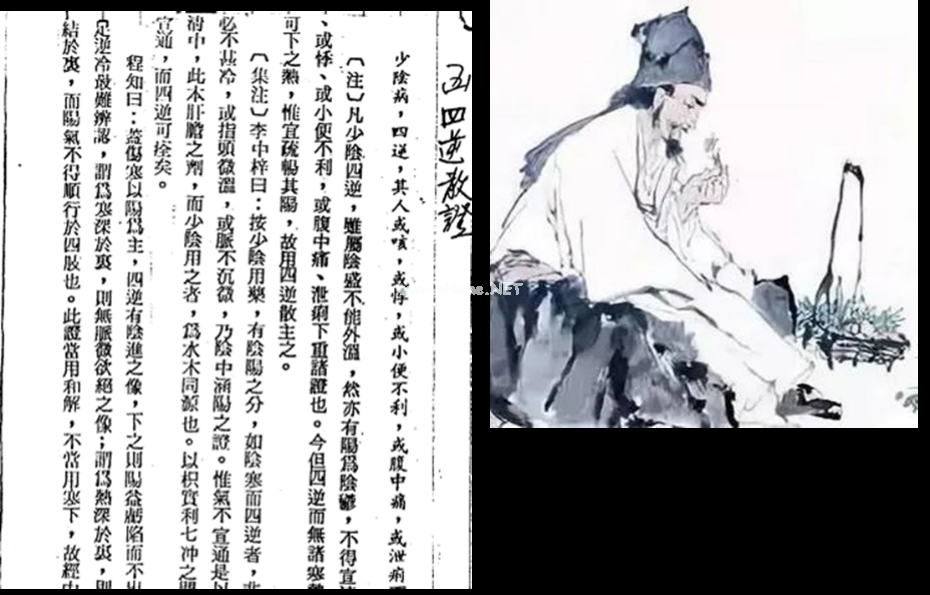 五四逆散證
少陰病，四逆，其人或咳，或悸，或小便不利，或腹中痛，或泄痢
〔注〕凡少陰四逆，雖屬陰盛不能外溫，然亦有陽爲陰鬱，不得宣
、或悸、或小便不利，或腹中痛、泄痢下重諸證也。今但四逆而無諸寒熱
可下之熱，惟宜疏暢其陽，故用四逆散主之。
〔集注〕李中梓曰：按少陰用藥，有陰陽之分，如陰寒而四逆者，非
必不甚冷，或指頭微溫，或脈不沉微，乃陰中涵陽之證。惟氣不宣通是以
清中，此本肝膽之劑，而少陰用之者，爲水木同源也。以枳實利七冲之門
宣通，而四逆可痊矣。
程知曰：蓋傷寒以陽爲主，四逆有陰進之像，下之則陽益虧陷而不出
是逆冷最難辨認，謂爲寒深於裏，則無脈微欲絕之像；謂爲熱深於裏，則
結於裏，而陽氣不得順行於四肢也。此證當用和解，不當用寒下，故經中
.NET